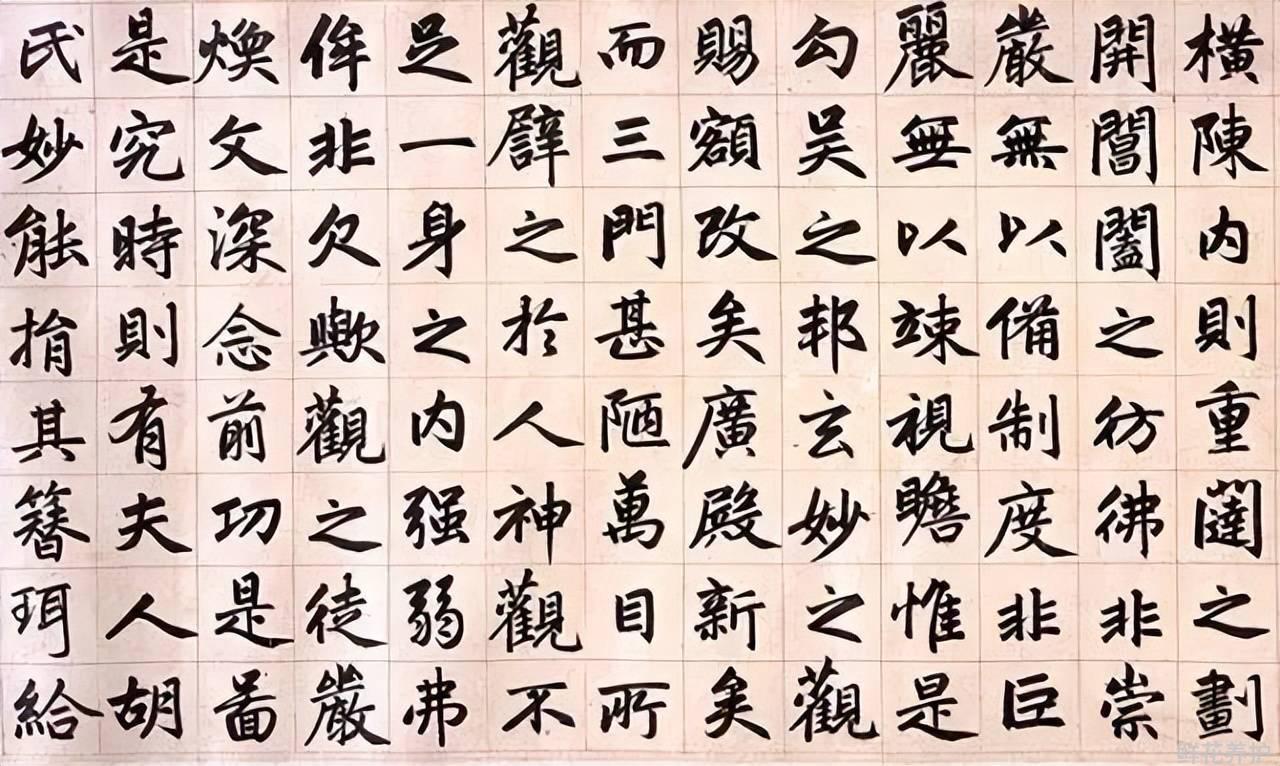 橫陳内則重闥之劃
開閶闔之彷彿非崇
嚴無以備制度非巨
麗無以竦視瞻惟是
勾吴之邦玄妙之觀
賜額改矣廣殿新矣
而三門甚陋萬目所
觀譬之於人神觀不
足一身之内强弱弗
侔非欠歟觀之徒嚴
煥文深念前功是啚
是究時則有夫人胡
氏妙能捐其簪珥給
鲜花养护